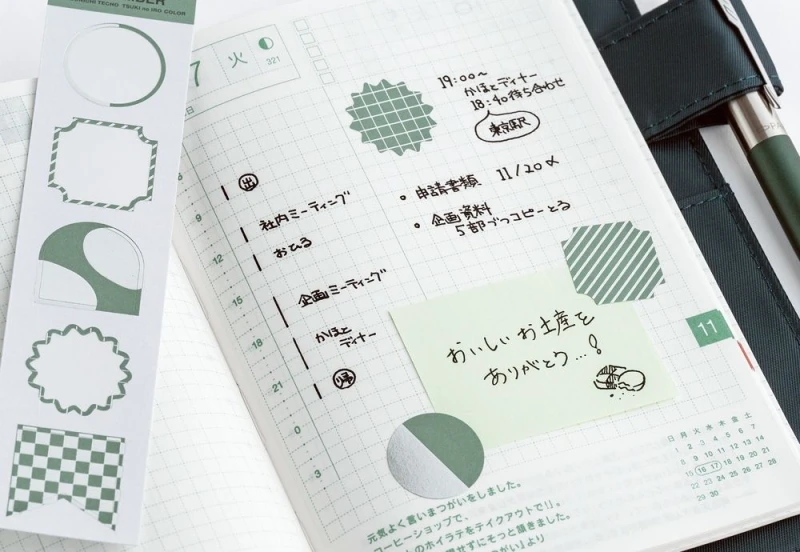 TSUKI no IRO COLOR
7
火
321
19:00〜
かほとディナー
18:40待ち合わせ
東京駅
出
9
社内ミーティング
おひる
12
15
企画ミーティング
18
かほと
ディナー
21
帰
0
3
・申請書類 11/20〆
・企画資料
5部ずつコピーとる
おいしいお土産を
ありがとう…!
11
日 月 火 水 木 金 土
1 2 3 4 5 6 7
8 9 10 11 12 13 14
15 16 17 18 19 20 21
22 23 24 25 26 27 28
29 30
元気よく言いまつがいをしました。
コーヒーショップで、
のホイラテをテイクアウトで!」。
せずにそっと頂きました。